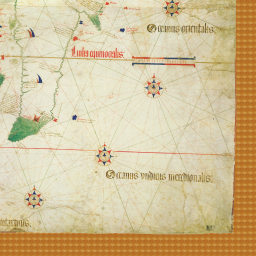 Oceanus orientalis.
Linha equinocialis.
Oceanus yndicus meridionalis.